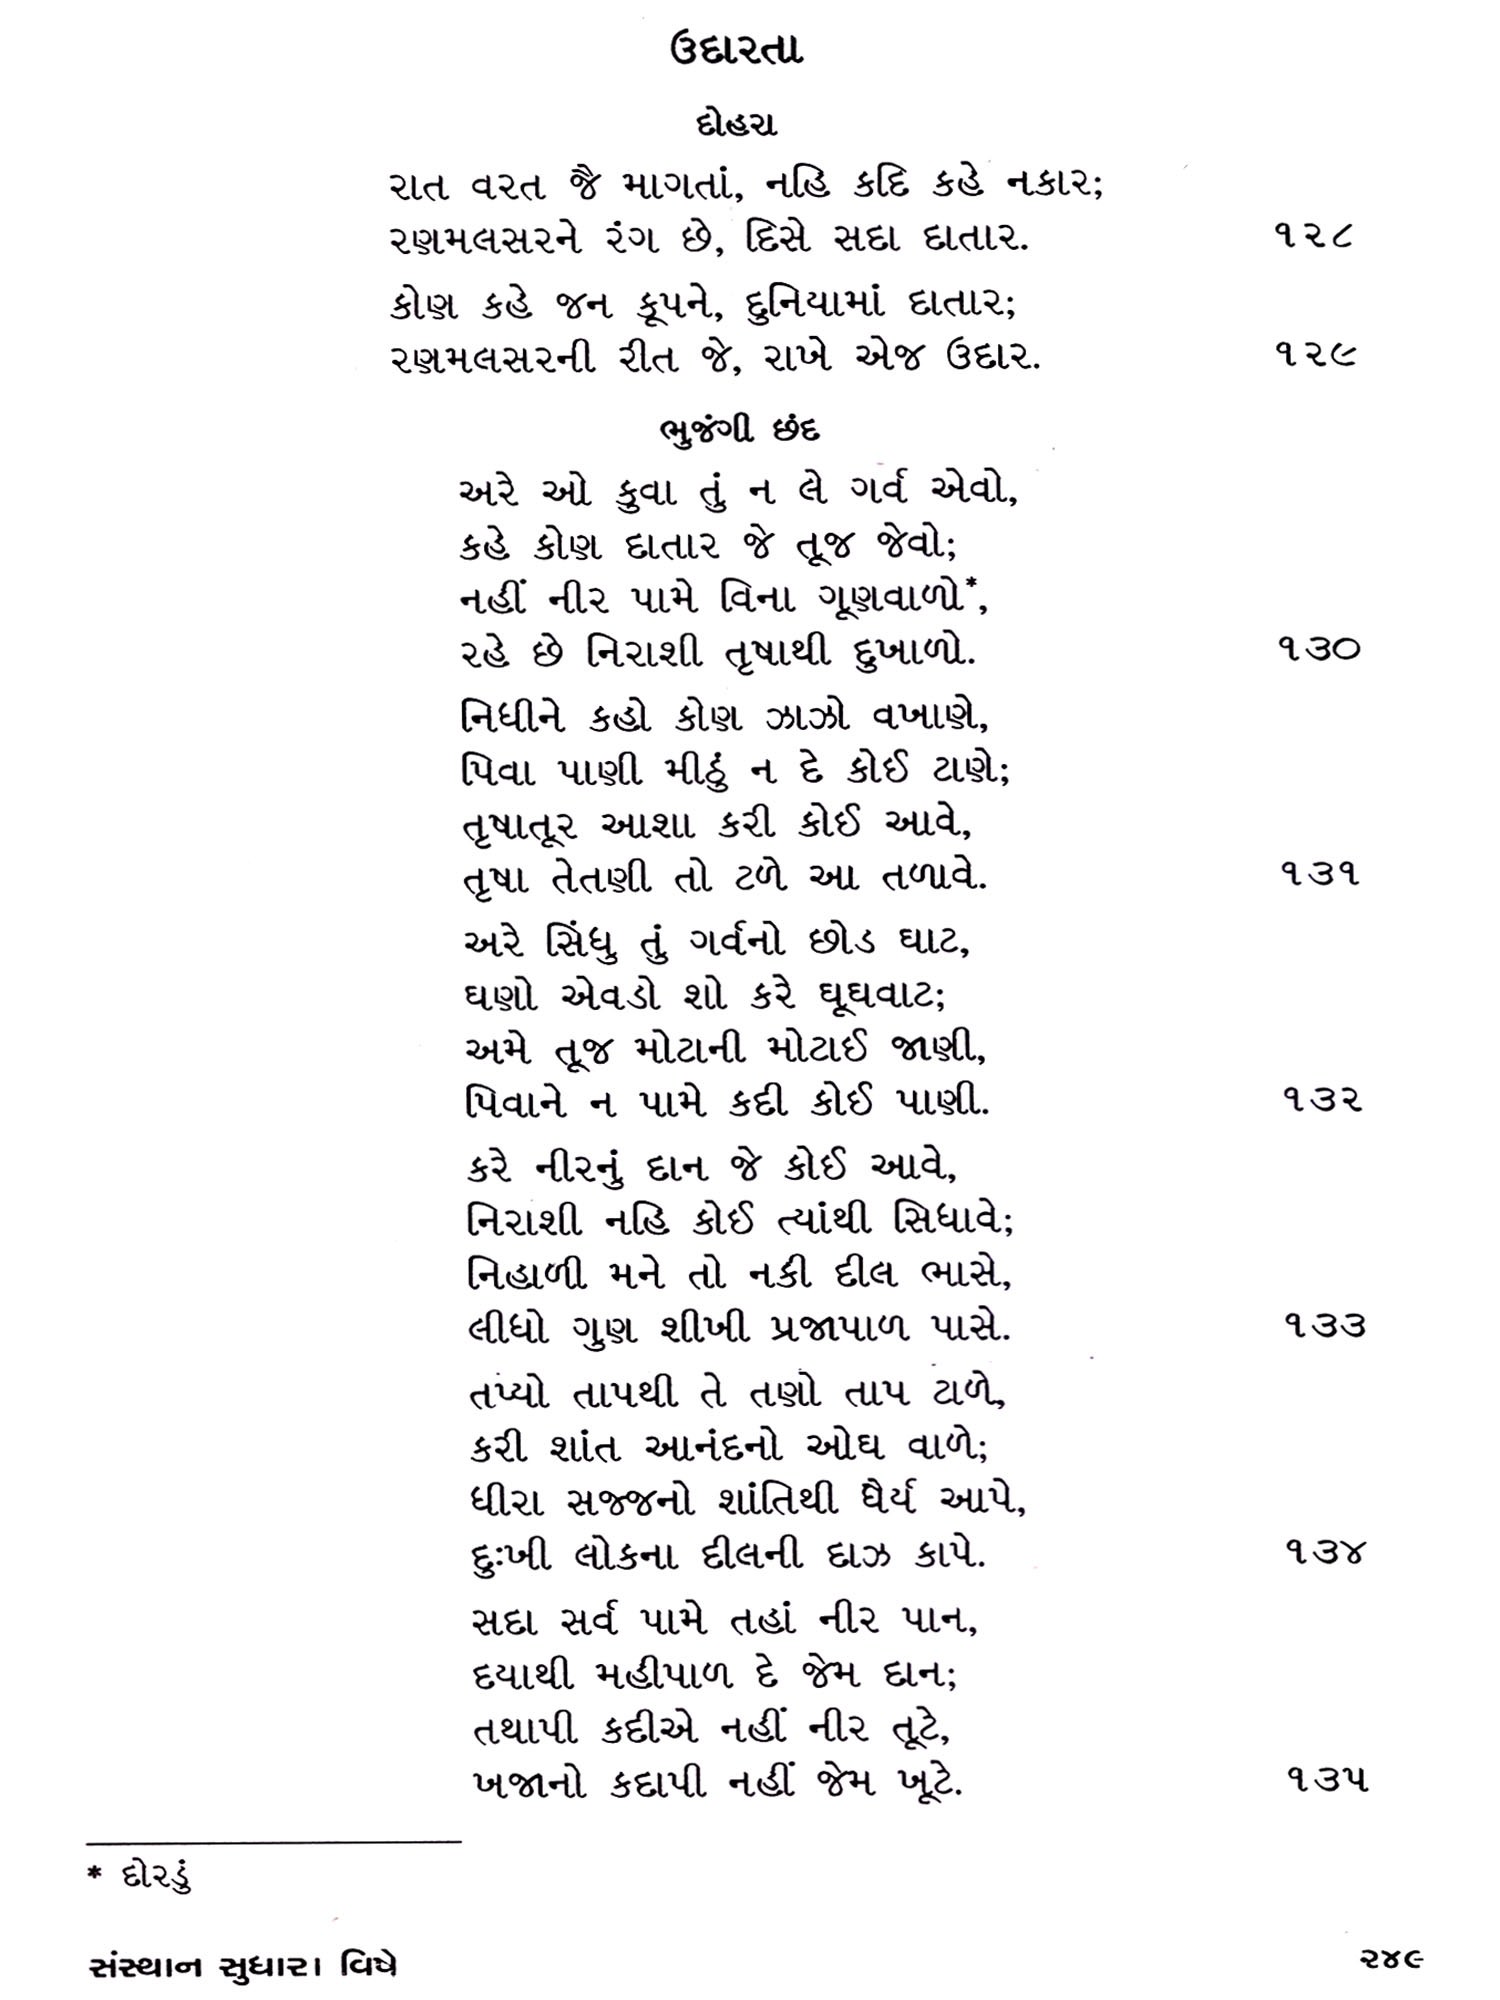 ઉદારતા
દોહરા
રાત વરત જૈ માગતાં, નહિ કદિ કહે નકાર;
રણમલસરને રંગ છે, દિસે સદા દાતાર. ૧૨૮
કોણ કહે જન કૂપને, દુનિયામાં દાતાર;
રણમલસરની રીત જે, રાખે એજ ઉદાર. ૧૨૯
ભુજંગી છંદ
અરે ઓ કુવા તું ન લે ગર્વ એવો,
કહે કોણ દાતાર જે તૂજ જેવો;
નહીં નીર પામે વિના ગૂણવાળો*,
રહે છે નિરાશી તૃષાથી દુખાળો. ૧૩૦
નિધીને કહો કોણ ઝાઝો વખાણે,
પિવા પાણી મીઠું ન દે કોઈ ટાણે;
તૃષાતૂર આશા કરી કોઈ આવે,
તૃષા તેતણી તો ટળે આ તળાવે. ૧૩૧
અરે સિંધુ તું ગર્વનો છોડ ઘાટ,
ઘણો એવડો શો કરે ઘૂઘવાટ;
અમે તૂજ મોટાની મોટાઈ જાણી,
પિવાને ન પામે કદી કોઈ પાણી. ૧૩૨
કરે નીરનું દાન જે કોઈ આવે,
નિરાશી નહિ કોઈ ત્યાંથી સિધાવે;
નિહાળી મને તો નકી દીલ ભાસે,
લીધો ગુણ શીખી પ્રજાપાળ પાસે. ૧૩૩
તપ્યો તાપથી તે તણો તાપ ટાળે,
કરી શાંત આનંદનો ઓઘ વાળે;
ધીરા સજ્જનો શાંતિથી ધૈર્ય આપે,
દુઃખી લોકના દીલની દાઝ કાપે. ૧૩૪
સદા સર્વ પામે તહાં નીર પાન,
દયાથી મહીપાળ દે જેમ દાન;
તથાપી કદીએ નહીં નીર તૂટે,
ખજાનો કદાપી નહીં જેમ ખૂટે. ૧૩૫
* દોરડું
સંસ્થાન સુધારા વિષે ૨૪૯